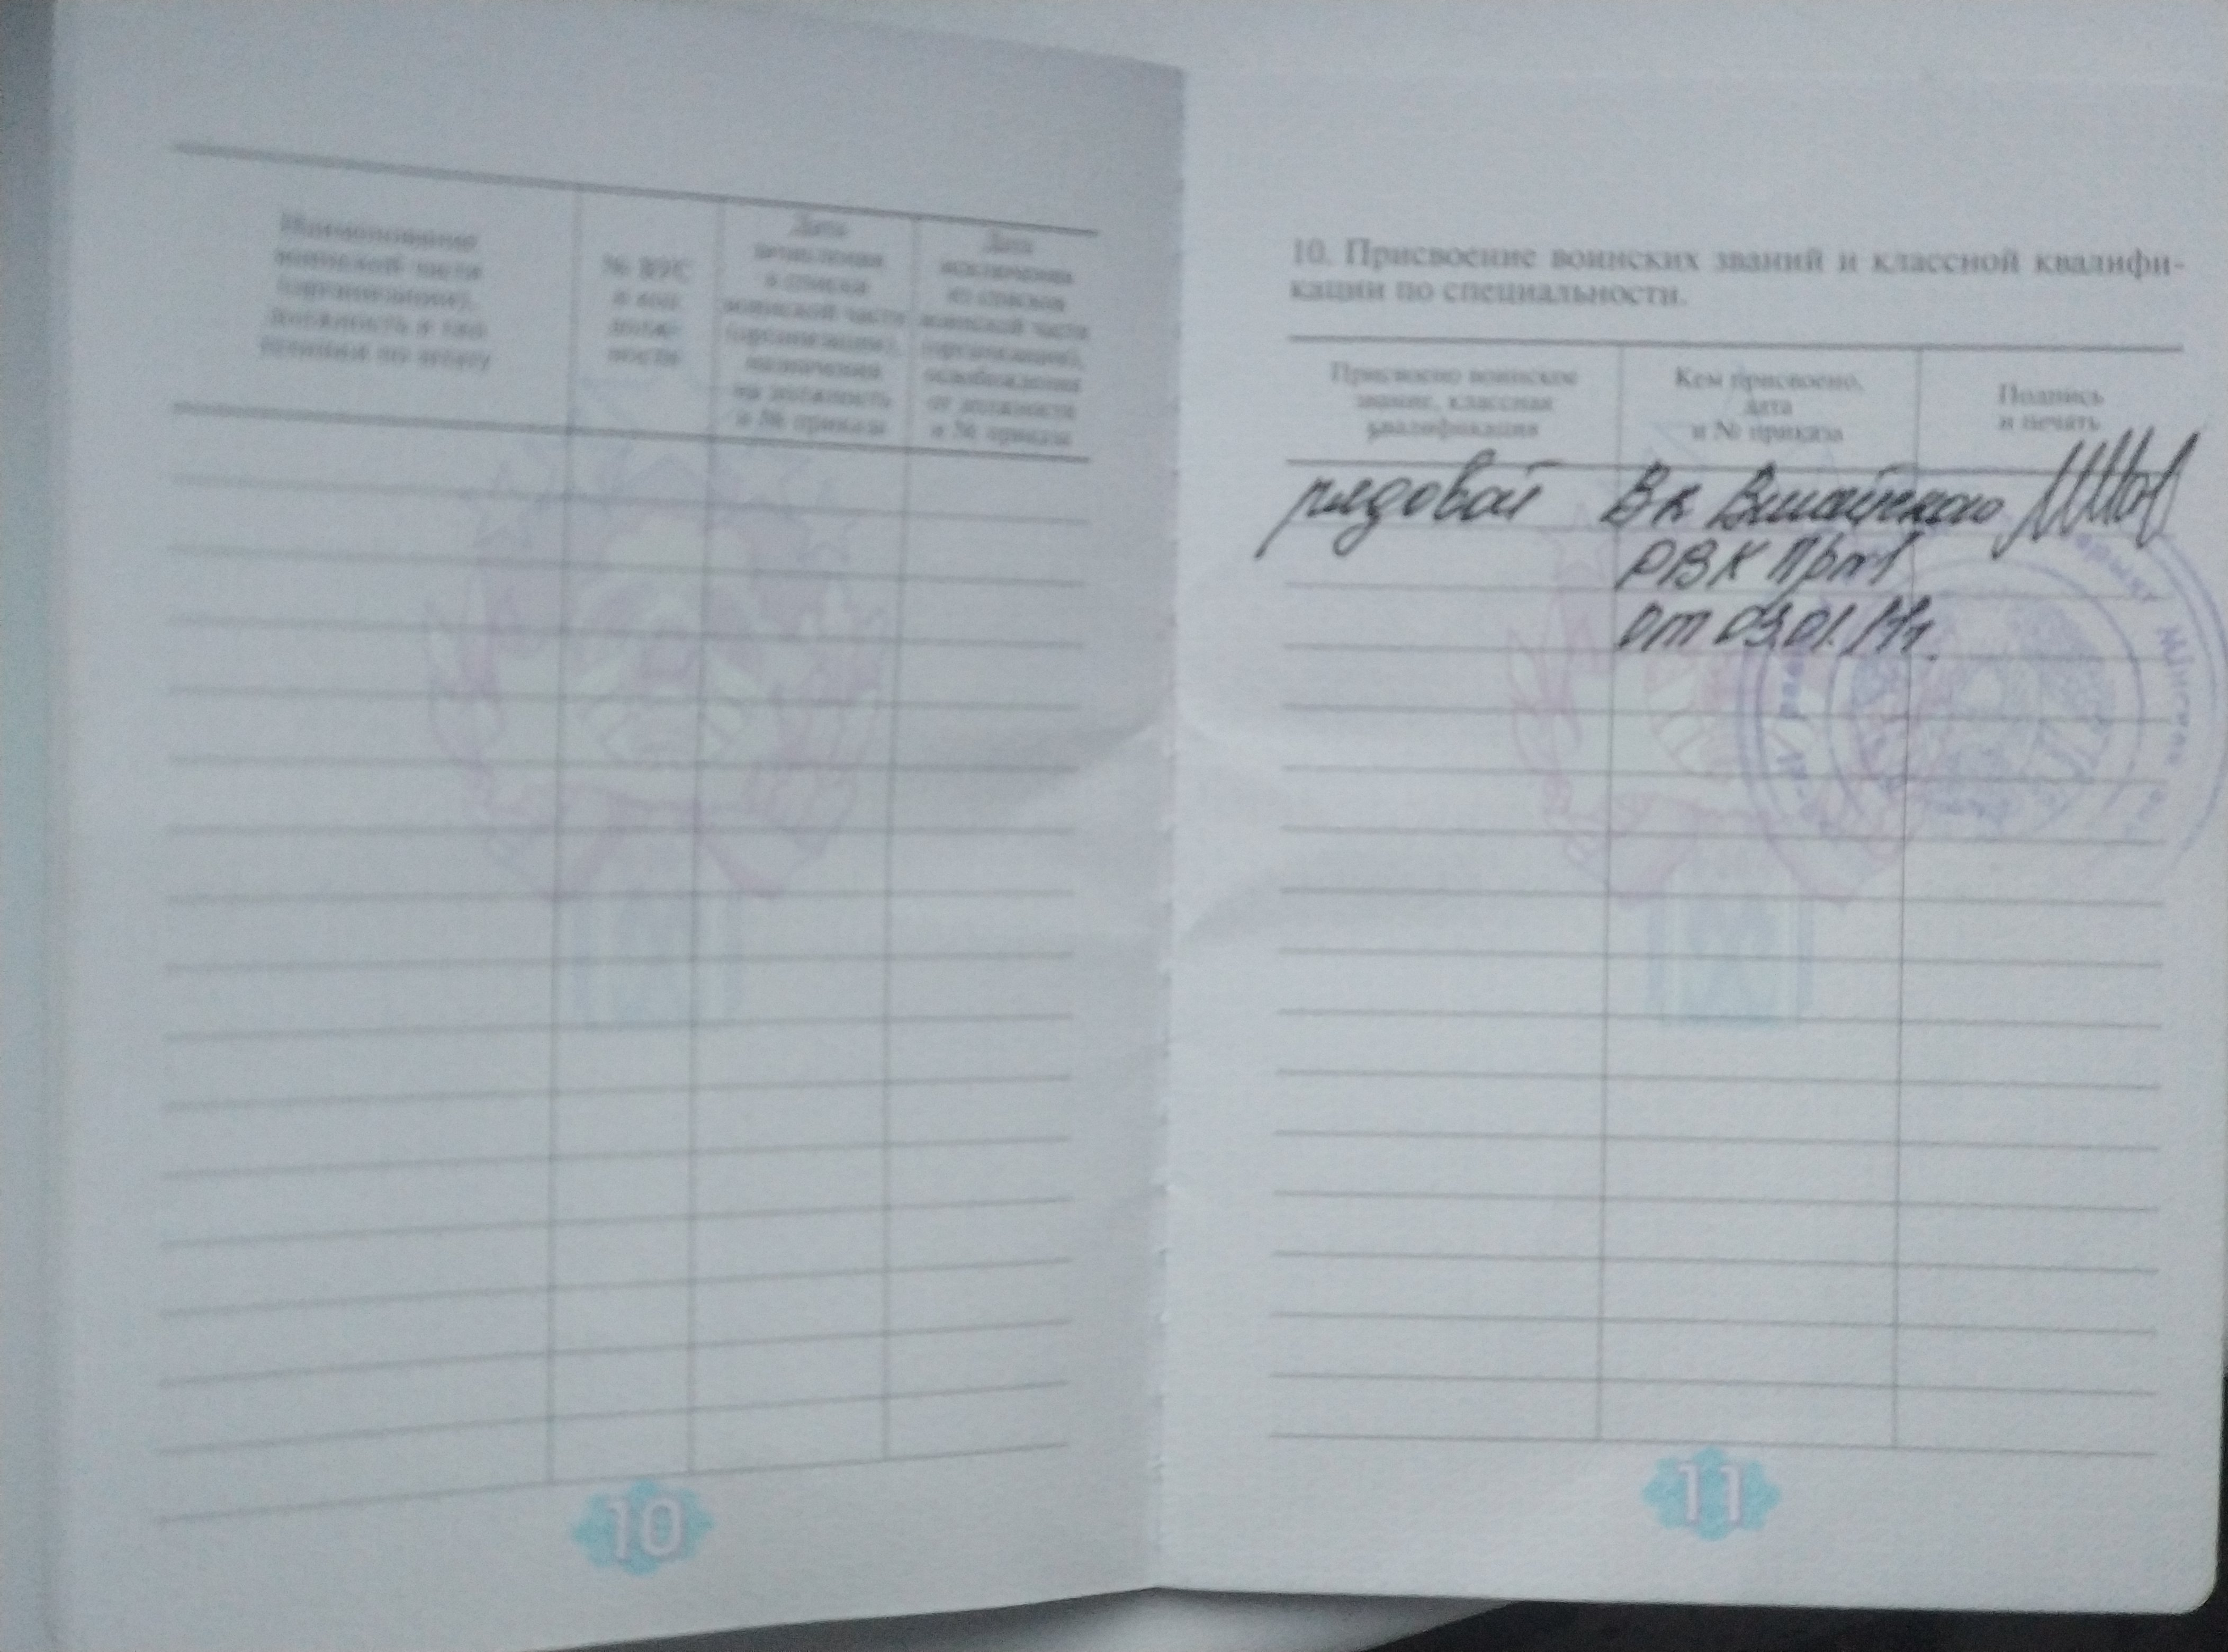 Наименование
воинской части
(организации),
должность и так
№ ВУС
и код
долж-
ности
Дата
зачисления
в списки
воинской части
(организации),
назначения
на должность
и № приказа
Дата
исключения
из списков
воинской части
(организации),
освобождения
от должности
и № приказа
10
10. Присвоение воинских званий и классной квалифи-
кации по специальности.
Присвоено воинское
звание, классная
квалификация
Кем присвоено,
дата
и № приказа
Подпись
и печать
рядовой
Вк
РВК
от
11